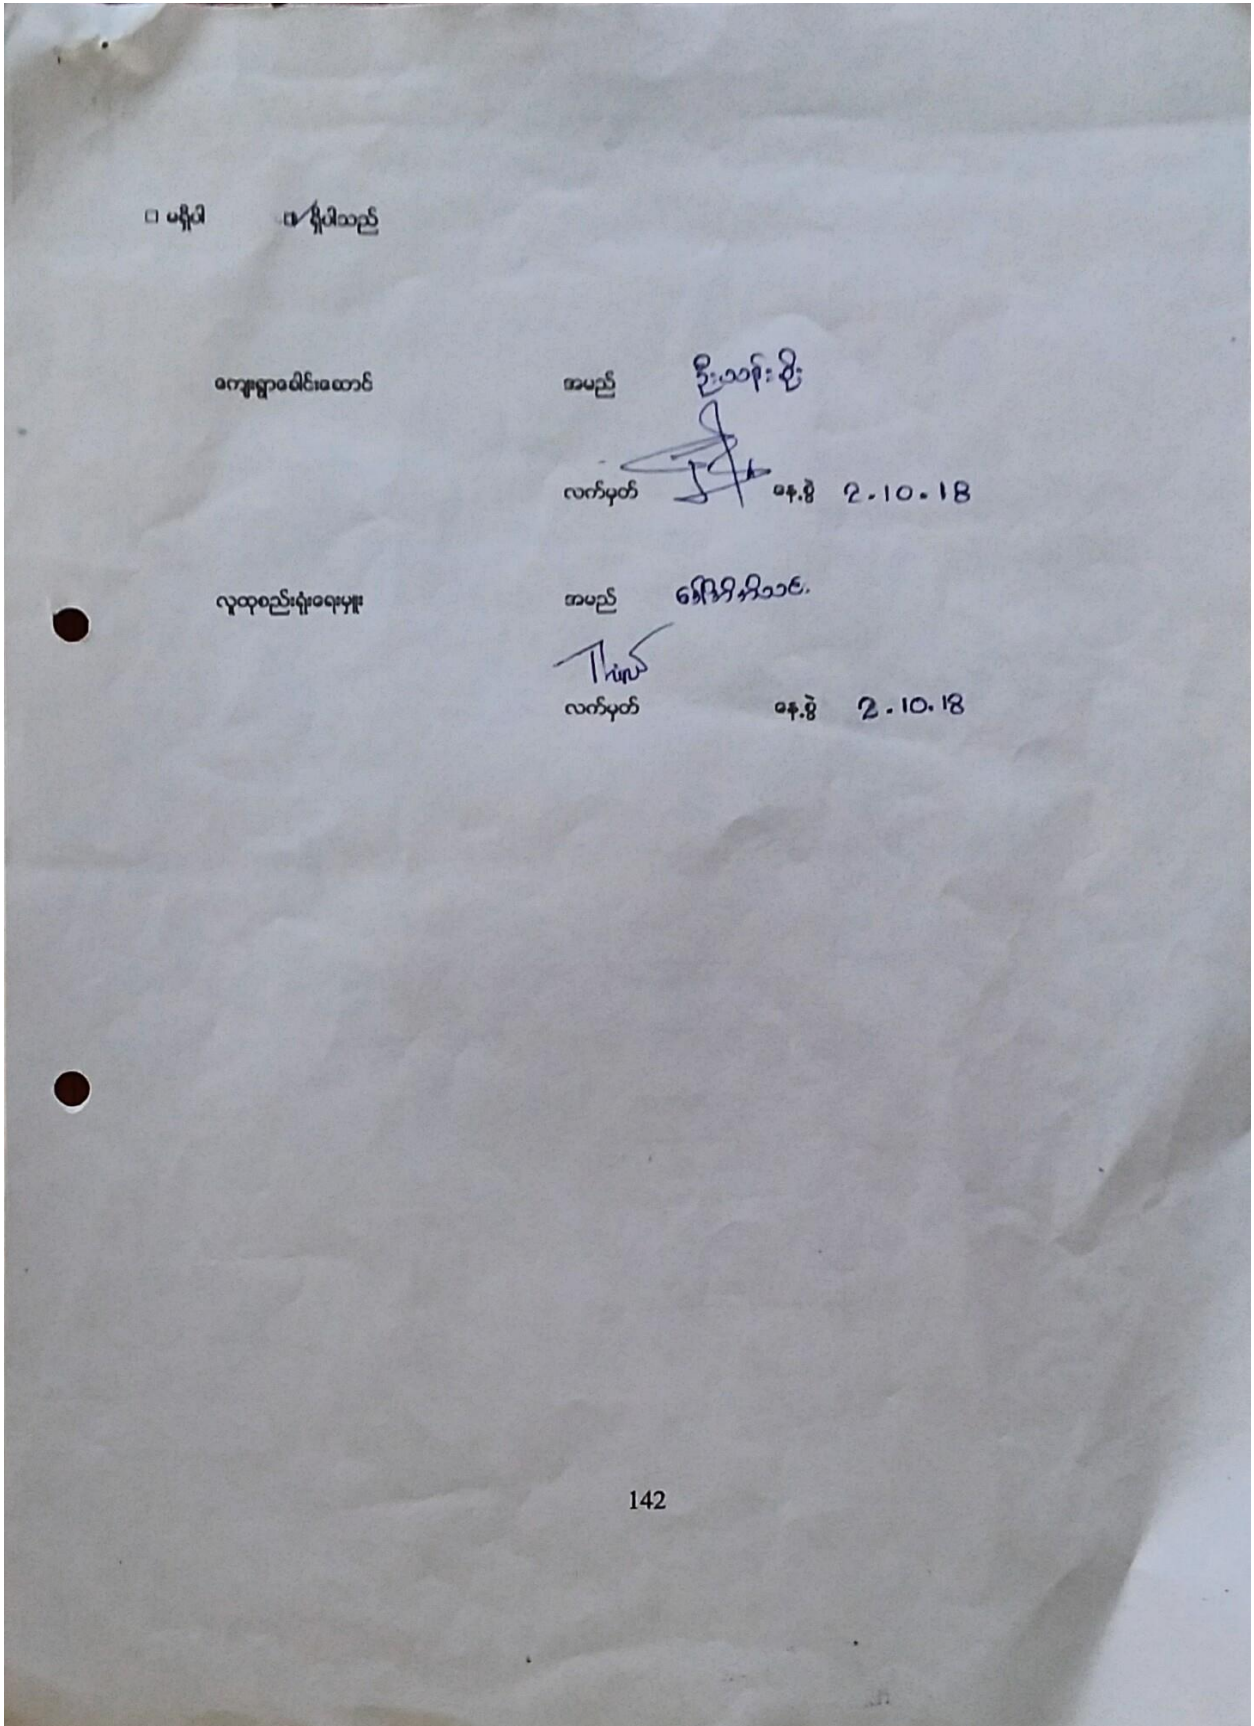 □ မရှိပါ □✓ ရှိပါသည်
ကျေးရွာခေါင်းဆောင် အမည် ဦးသန်းစိုး
လက်မှတ် နေ့စွဲ 2.10.18
လူထုစည်းရုံးရေးမှူး အမည်
လက်မှတ် နေ့စွဲ 2.10.18
142